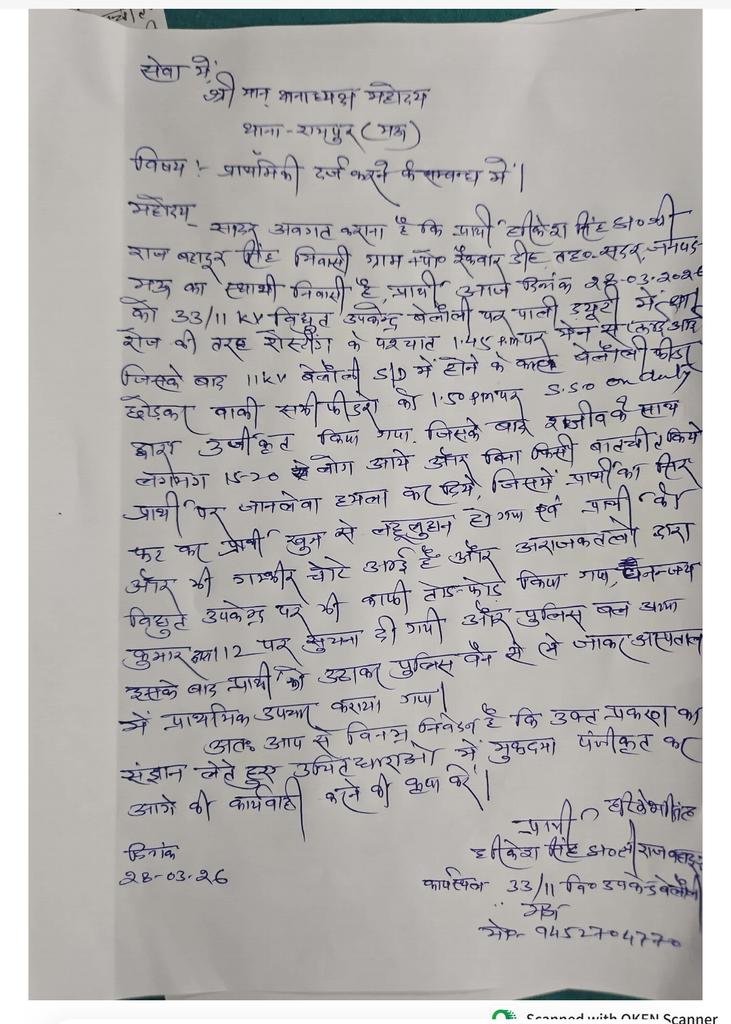 सेवा में,
श्री मान् थानाध्यक्ष महोदय
थाना - रामपुर (मऊ)
विषय :- प्राथमिकी दर्ज करने के सम्बन्ध में।
महोदय,
सादर अवगत कराना है कि प्रार्थी हरिकेश सिंह S/o श्री
राज बहादुर सिंह निवासी ग्राम व पो० रैकवार डीह तह०-सदर, जनपद-
मऊ का स्थायी निवासी है, प्रार्थी आज दिनांक 28-03-2026
को 33/11 KV विद्युत उपकेन्द्र बेलौली पर पाली ड्यूटी में था,
रोज की तरह रोस्टिंग के पश्चात 1.45 PM पर मेन से
जिसके बाद 11KV बेलौली S/D में होने के कारण बेलौली फीडर
छोड़कर बाकी सभी फीडरो को 1.50 PM पर S.S.O on duty
द्वारा उर्जीकृत किया गया. जिसके बाद राजीव के साथ
लगभग 15-20 लोग आये और बिना किसी बातचीत किये
प्रार्थी पर जानलेवा हमला कर दिये, जिसमें प्रार्थी का सिर
फट कर प्रार्थी खून से लहूलुहान हो गया एवं प्रार्थी को
और भी गम्भीर चोटे आई है और अराजकतत्वो द्वारा
विद्युत उपकेन्द्र पर भी काफी तोड़-फोड़ किया गया, धनन्जय
कुमार द्वारा 112 पर सुचना दी गयी और पुलिस बल आया
इसके बाद प्रार्थी को उठाकर पुलिस वैन से ले जाकर अस्पताल
में प्राथमिक उपचार कराया गया।
अतः आप से विनम्र निवेदन है कि उक्त प्रकरण का
संज्ञान लेते हुए उचित धाराओ में मुकदमा पंजीकृत कर
आगे की कार्यवाही करने की कृपा करें।
हरिकेश सिंह
प्रार्थी
हरिकेश सिंह S/o श्री राज बहादुर
दिनांक
28-03-26
कार्यस्थल 33/11 वि० उपकेन्द्र बेलौली
मऊ
मो०- 9452704770
Scanned with OKEN Scanner